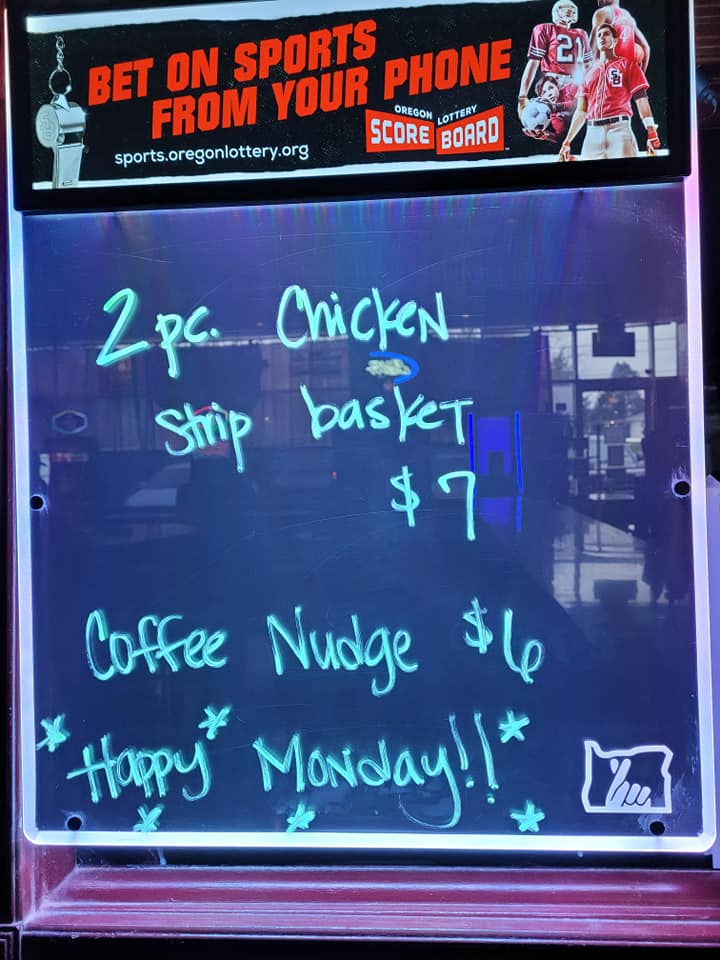 BET ON SPORTS
FROM YOUR PHONE
OREGON LOTTERY
SCORE BOARD
sports.oregonlottery.org
21
4
SB
2 pc. Chicken
Strip basket
$7
Coffee Nudge $6
Happy Monday!!